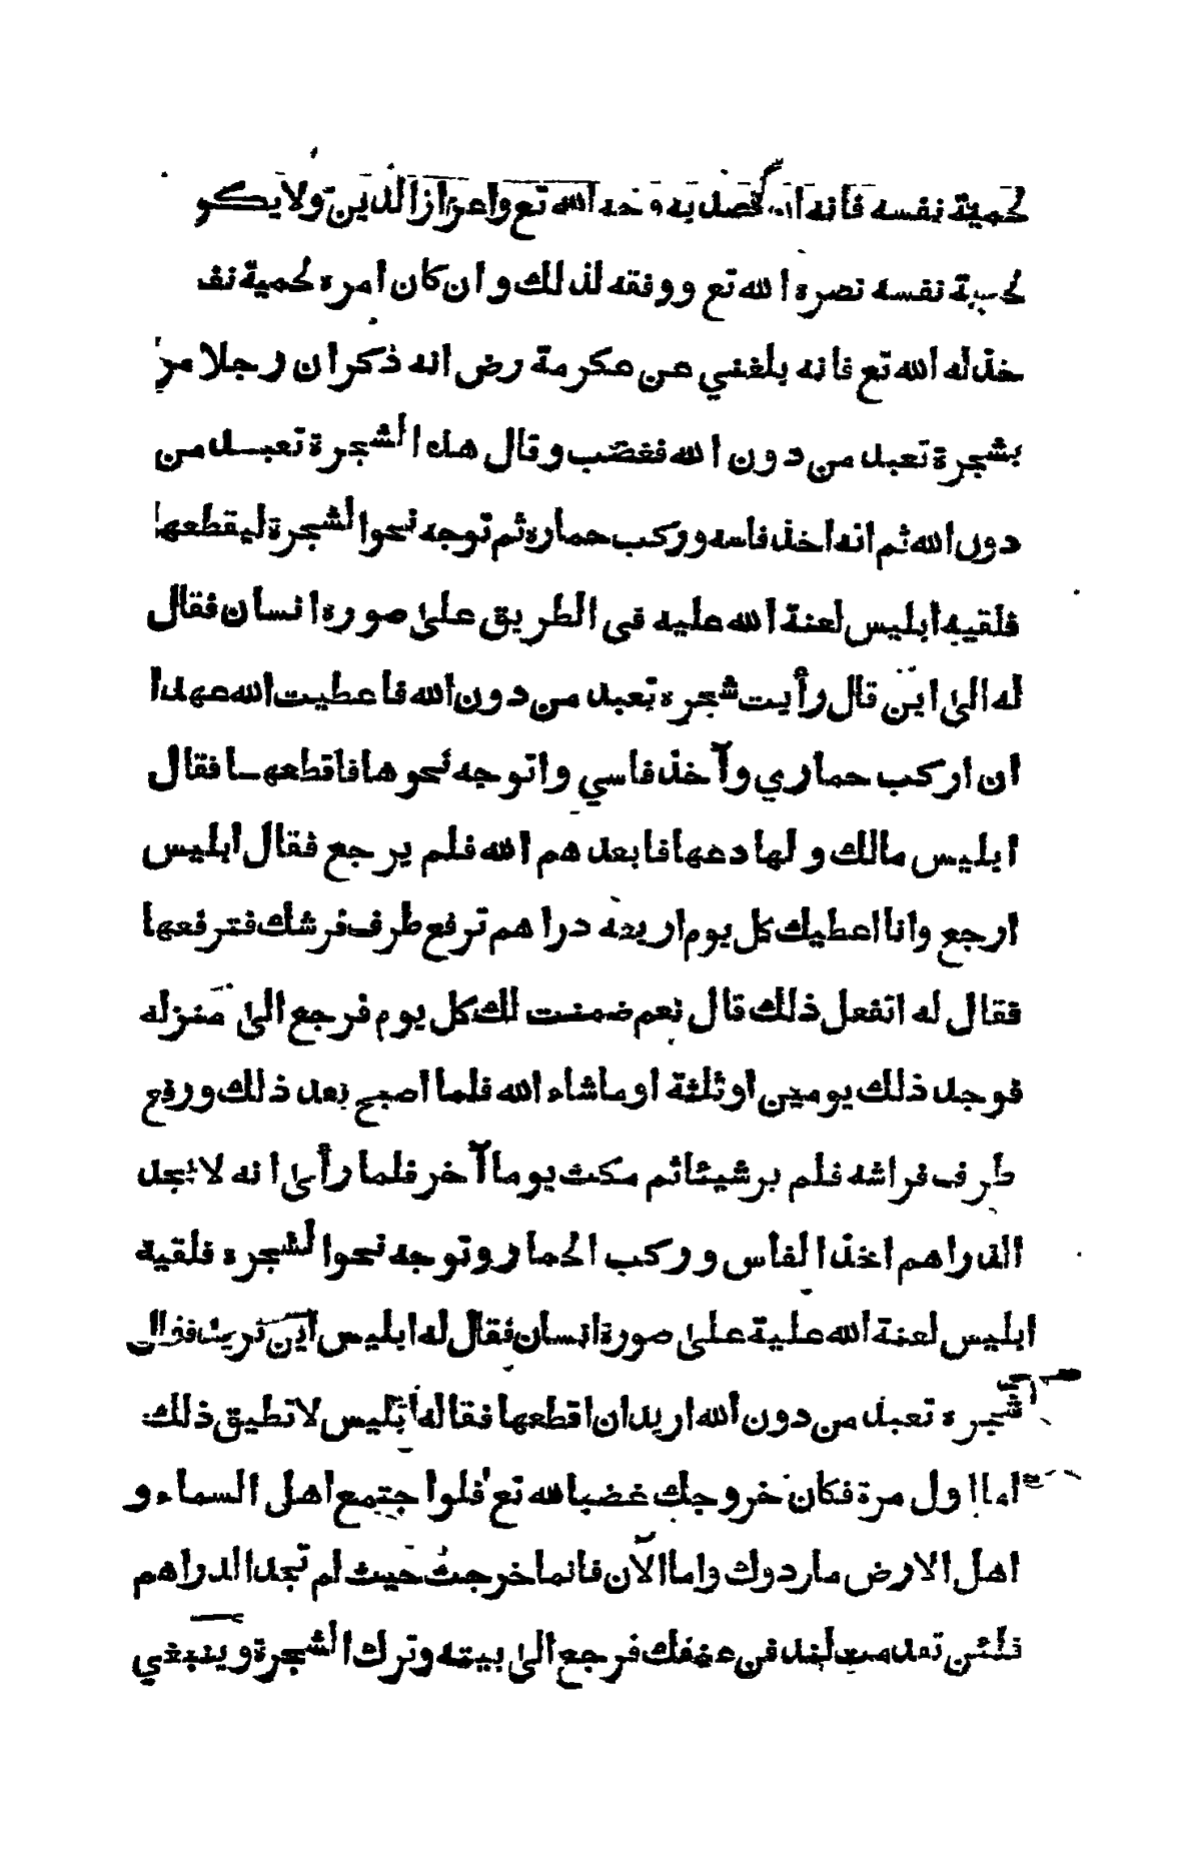 لحمية نفسه فانه ان قصد به وجه الله تع واعزاز الدين ولا يكو
لحمية نفسه نصره الله تع ووفقه لذلك وان كان امره لحمية نف
خذله الله تع فانه بلغني عن عكرمة رض انه ذكر ان رجلا مر
بشجرة تعبد من دون الله فغضب وقال هذه الشجرة تعبد من
دون الله ثم انه اخذ فاسه وركب حماره ثم توجه نحو الشجرة ليقطعها
فلقيه ابليس لعنة الله عليه في الطريق على صورة انسان فقال
له الى اين قال رأيت شجرة تعبد من دون الله فاعطيت الله عهدا
ان اركب حماري وآخذ فاسي واتوجه نحوها فاقطعها فقال
ابليس مالك ولها دعها فابعدهم الله فلم يرجع فقال ابليس
ارجع وانا اعطيك كل يوم اربعه دراهم ترفع طرف فرشك فترفعها
فقال له اتفعل ذلك قال نعم ضمنت لك كل يوم فرجع الى منزله
فوجد ذلك يومين او ثلثة او ماشاء الله فلما اصبح بعد ذلك ورفع
طرف فراشه فلم ير شيئا ثم مكث يوما آخر فلما رأى انه لا يجد
الدراهم اخذ الفأس وركب الحمار وتوجه نحو الشجره فلقية
ابليس لعنة الله علية على صورة انسان فقال له ابليس اين تريد فقال
شجرة تعبد من دون الله اريد ان اقطعها فقاله ابليس لا تطيق ذلك
اما اول مرة فكان خروجك غضبا لله تع فلو اجتمع اهل السماء و
اهل الارض ماردوك واما الآن فانما خرجت حيث لم تجد الدراهم
فلئن تقدمت عنقك فرجع الى بيته وترك الشجرة وينبغي